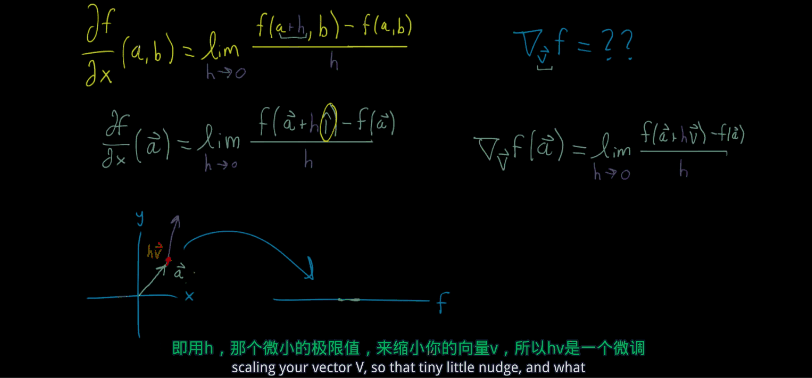 ∂f/∂x (a,b) = lim_{h→0} (f(a+h, b) − f(a,b))/h
∇_{v⃗} f = ??
∂f/∂x (a⃗) = lim_{h→0} (f(a⃗+hî) − f(a⃗))/h
∇_{v⃗} f(a⃗) = lim_{h→0} (f(a⃗+hv⃗) − f(a⃗))/h
y
hv⃗
a⃗
x
f
即用h，那个微小的极限值，来缩小你的向量v，所以hv是一个微调
scaling your vector V, so that tiny little nudge, and what